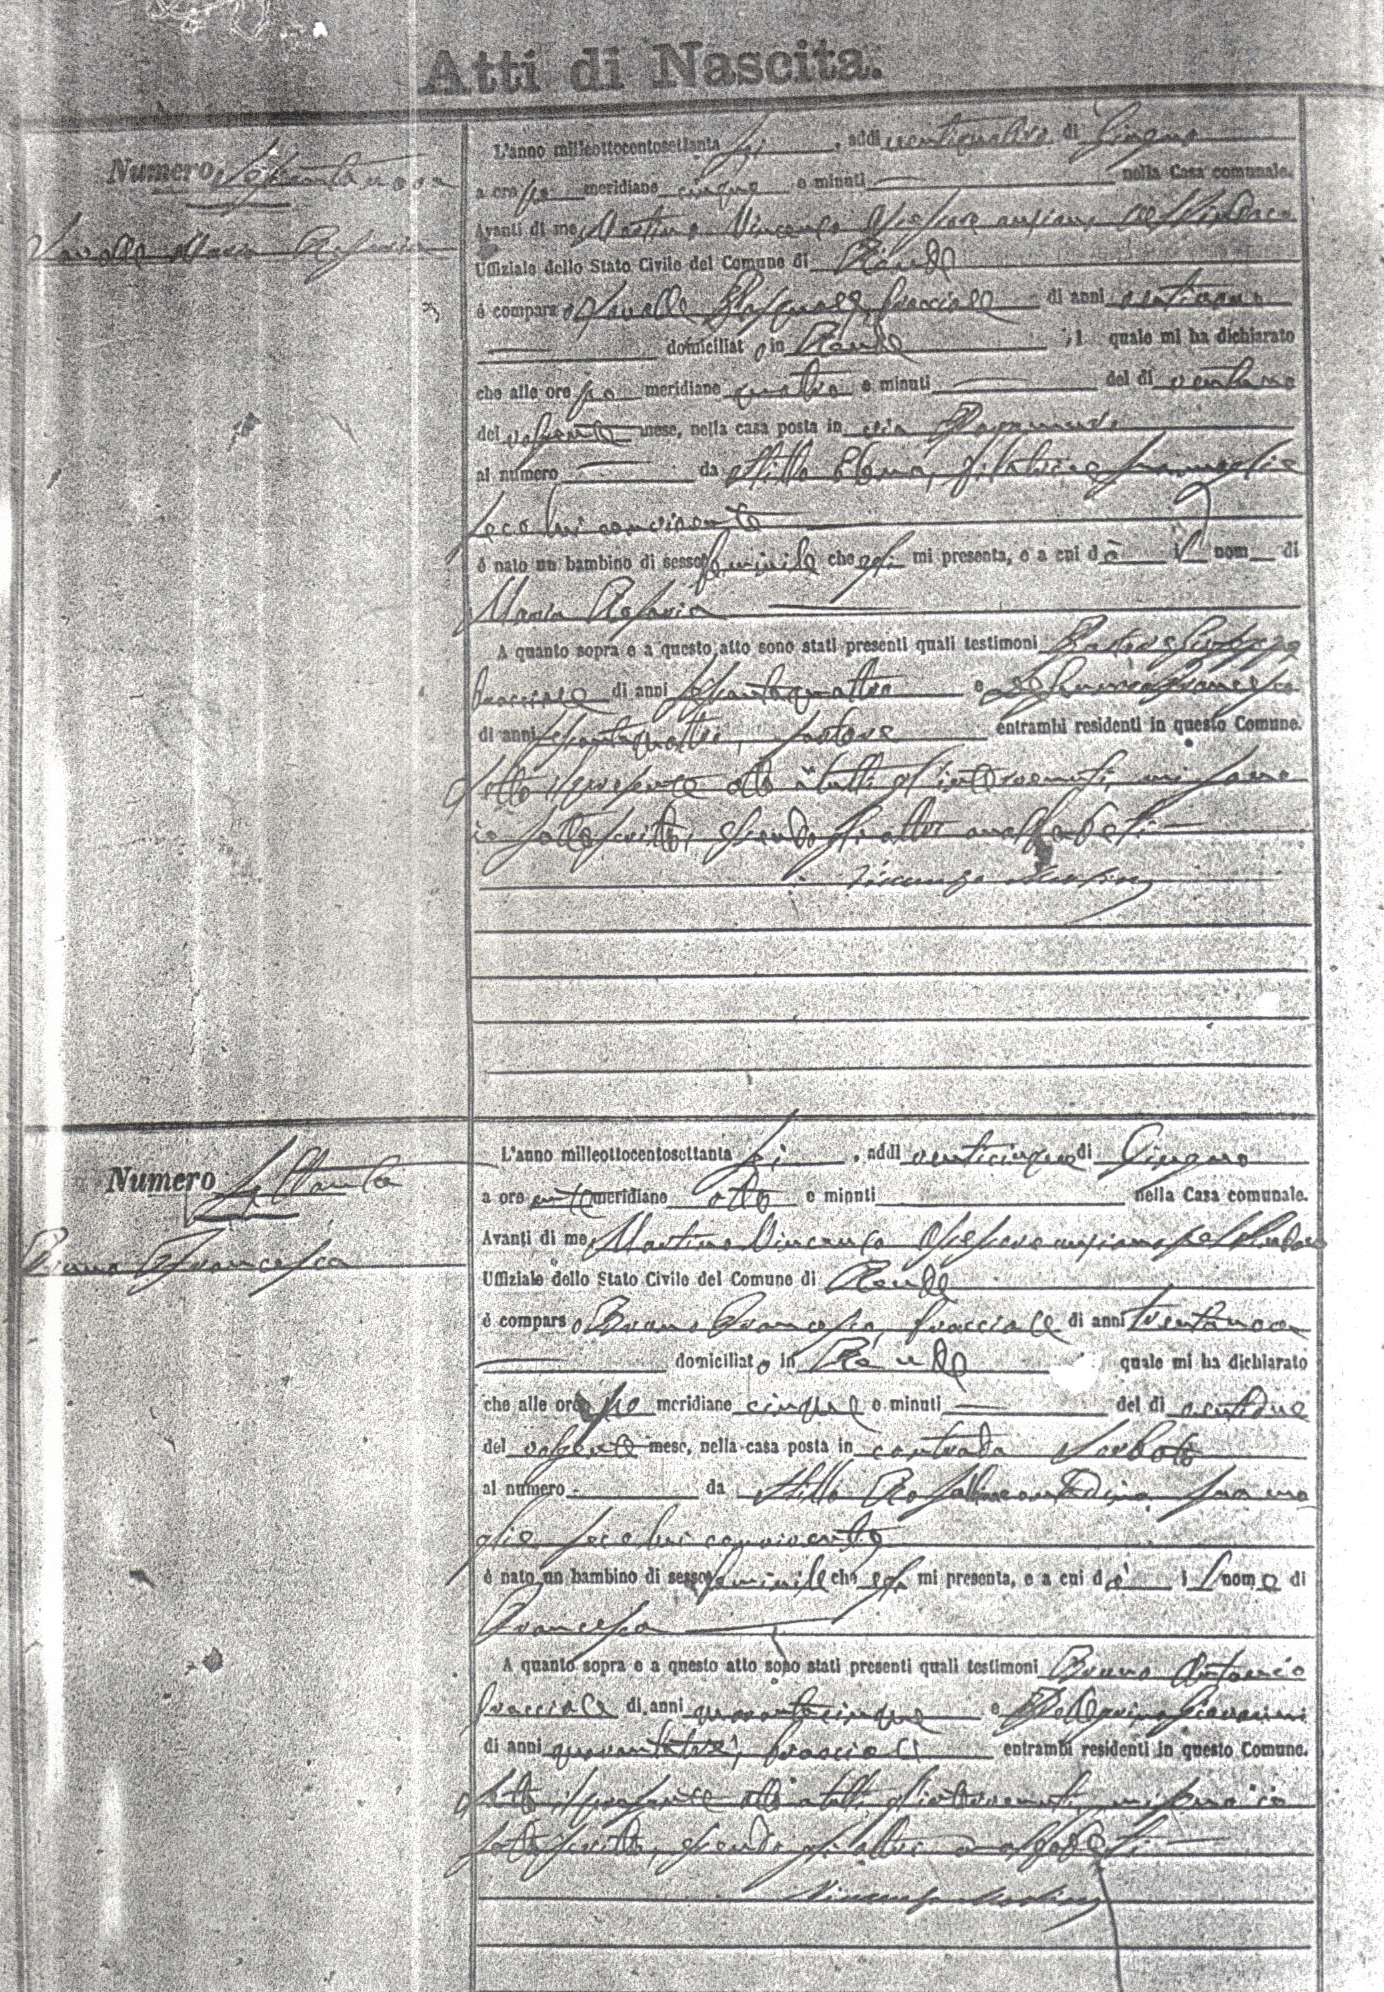 Atti di Nascita.
Numero Sessantanove
Maria Rosaria
L'anno milleottocentosettanta sei, addi ventiquattro di Giugno
a ore po meridiane cinque e minuti — nella Casa comunale.
Avanti di me Martino Vincenzo Assessore anziano pel Sindaco
Uffiziale dello Stato Civile del Comune di Rende
è comparso Pasquale, bracciale di anni
— domiciliato in Rende , il quale mi ha dichiarato
che alle ore po meridiane quattro e minuti — del di ventuno
del volgente mese, nella casa posta in via
al numero — da Stillo Elena, filatrice sua moglie
seco lui convivente
è nato un bambino di sesso feminile che egli mi presenta, e a cui dà il nom di
Maria Rosaria
A quanto sopra e a questo atto sono stati presenti quali testimoni Giuseppe
bracciale di anni sessantaquattro e Francesco
di anni pastore entrambi residenti in questo Comune.
Letto il presente atto a tutti gl'intervenuti, mi sono
io sottoscritto, essendo gli altri analfabeti
Vincenzo Martino
Numero Settanta
Bruno Francesca
L'anno milleottocentosettanta sei, addi venticinque di Giugno
a ore ante meridiane otto e minuti nella Casa comunale.
Avanti di me Martino Vincenzo Assessore anziano pel Sindaco
Uffiziale dello Stato Civile del Comune di Rende
è comparso Bruno Francesco, bracciale di anni trentanove
— domiciliato in Rende quale mi ha dichiarato
che alle ore po meridiane cinque e minuti — del di ventidue
del volgente mese, nella casa posta in contrada
al numero — da Stillo Rosa contadina sua mo
glie seco lui convivente
è nato un bambino di sesso feminile che egli mi presenta, e a cui dà il nome di
Francesca
A quanto sopra e a questo atto sono stati presenti quali testimoni Bruno Antonio
bracciale di anni quarantacinque e Giovanni
di anni quarantatrè, bracciali entrambi residenti in questo Comune.
Letto il presente atto a tutti gl'intervenuti, mi sono io
sottoscritto, essendo gli altri analfabeti
Vincenzo Martino